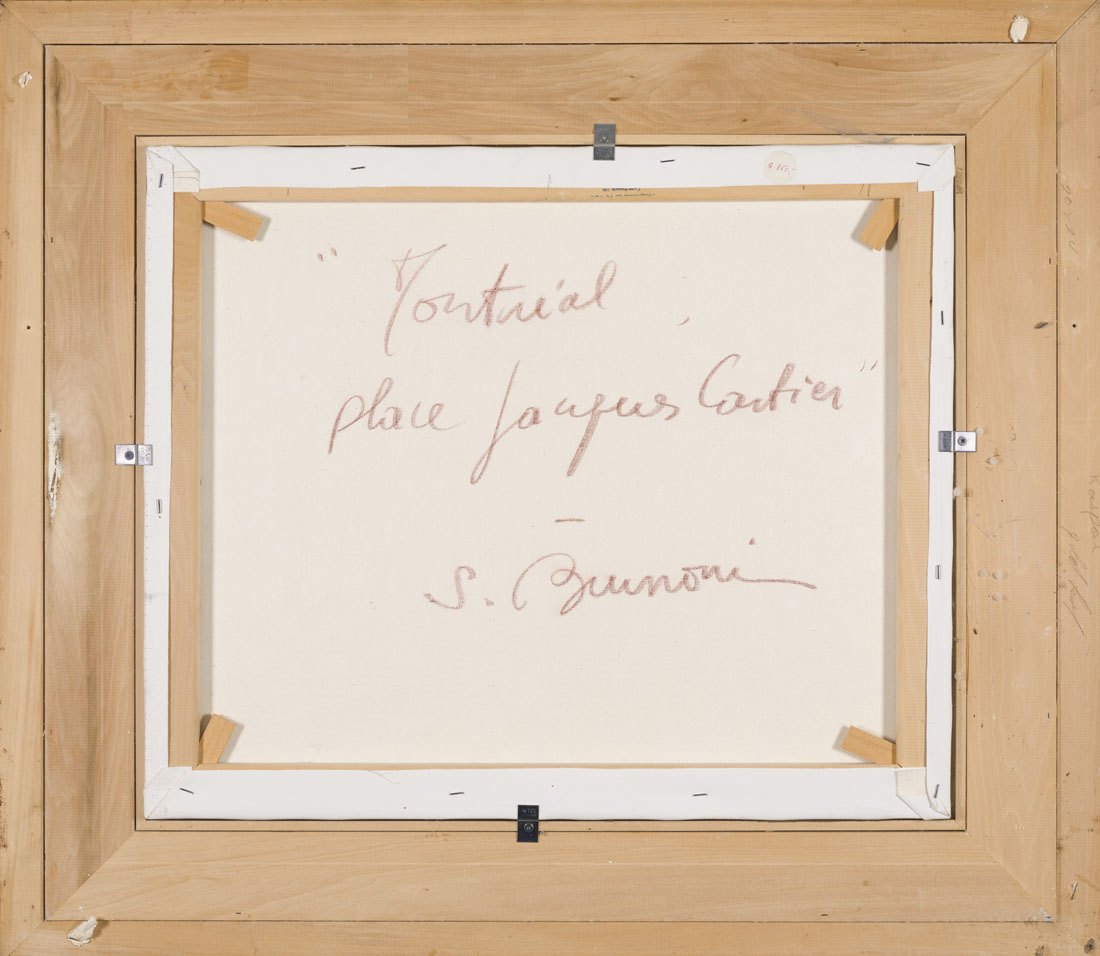 " Montréal
place Jacques Cartier"
–
S. Brunoni